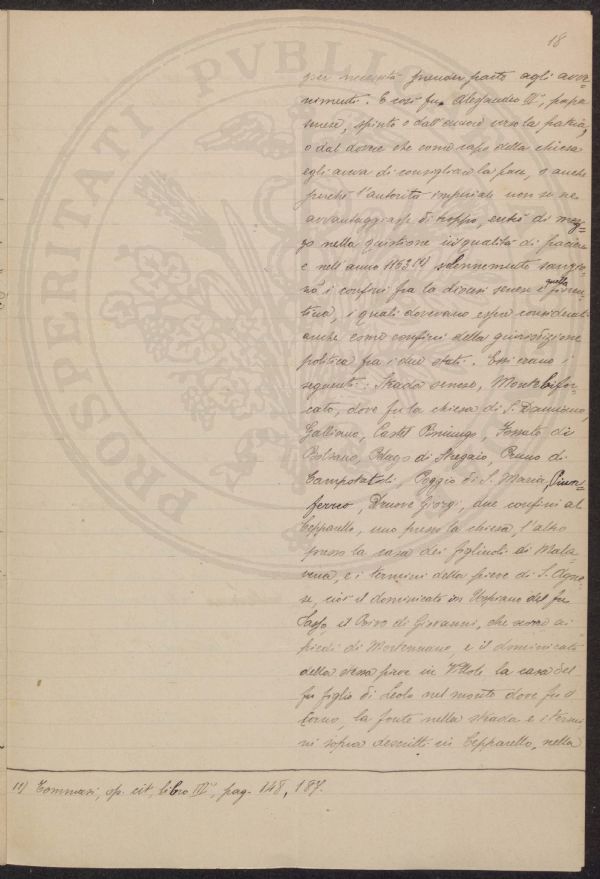 18
per necessità prender parte agli avve=
nimenti. E così fu. Alessandro III°, papa
senese, spinto o dall'amore verso la patria,
o dal dovere che come capo della chiesa
egli aveva di consigliare la pace, o anche
perché l'autorità imperiale non se ne
avvantaggiasse di troppo, entrò di mez=
zo nella quistione in qualità di paciere
e nell'anno 1153 (1) solennemente sanzio
nò i confini fra la diocesi senese e quella fioren
tina, i quali dovevano esser considerati
anche come confini della giurisdizione
politica fra i due stati. Essi erano i
seguenti: Strada senese, Montebifor-
cato, dove fu la chiesa di S. Damiano,
Galliano, Castel Fossato di
Bolsano, di Pruno di
Poggio di S. Maria,
ferreo, Giorgi, due confini al
Cepparello, uno presso la chiesa, l'altro
presso la casa dei figliuoli di Mala
vena, e i termini della pieve di S. Agne-
se, cioè il dominicato in del fu
il di Giovanni, che ai
piedi di e il dominicato
della stessa pieve in la casa del
fu figlio di nel monte dove fu il
la fonte nella strada e i termi
ni sopra descritti in Cepparello, nella
(1) Tommasi, op. cit, libro III°, pag. 148, 187.
PROSPERITATI PVBLIC AVGENDAE